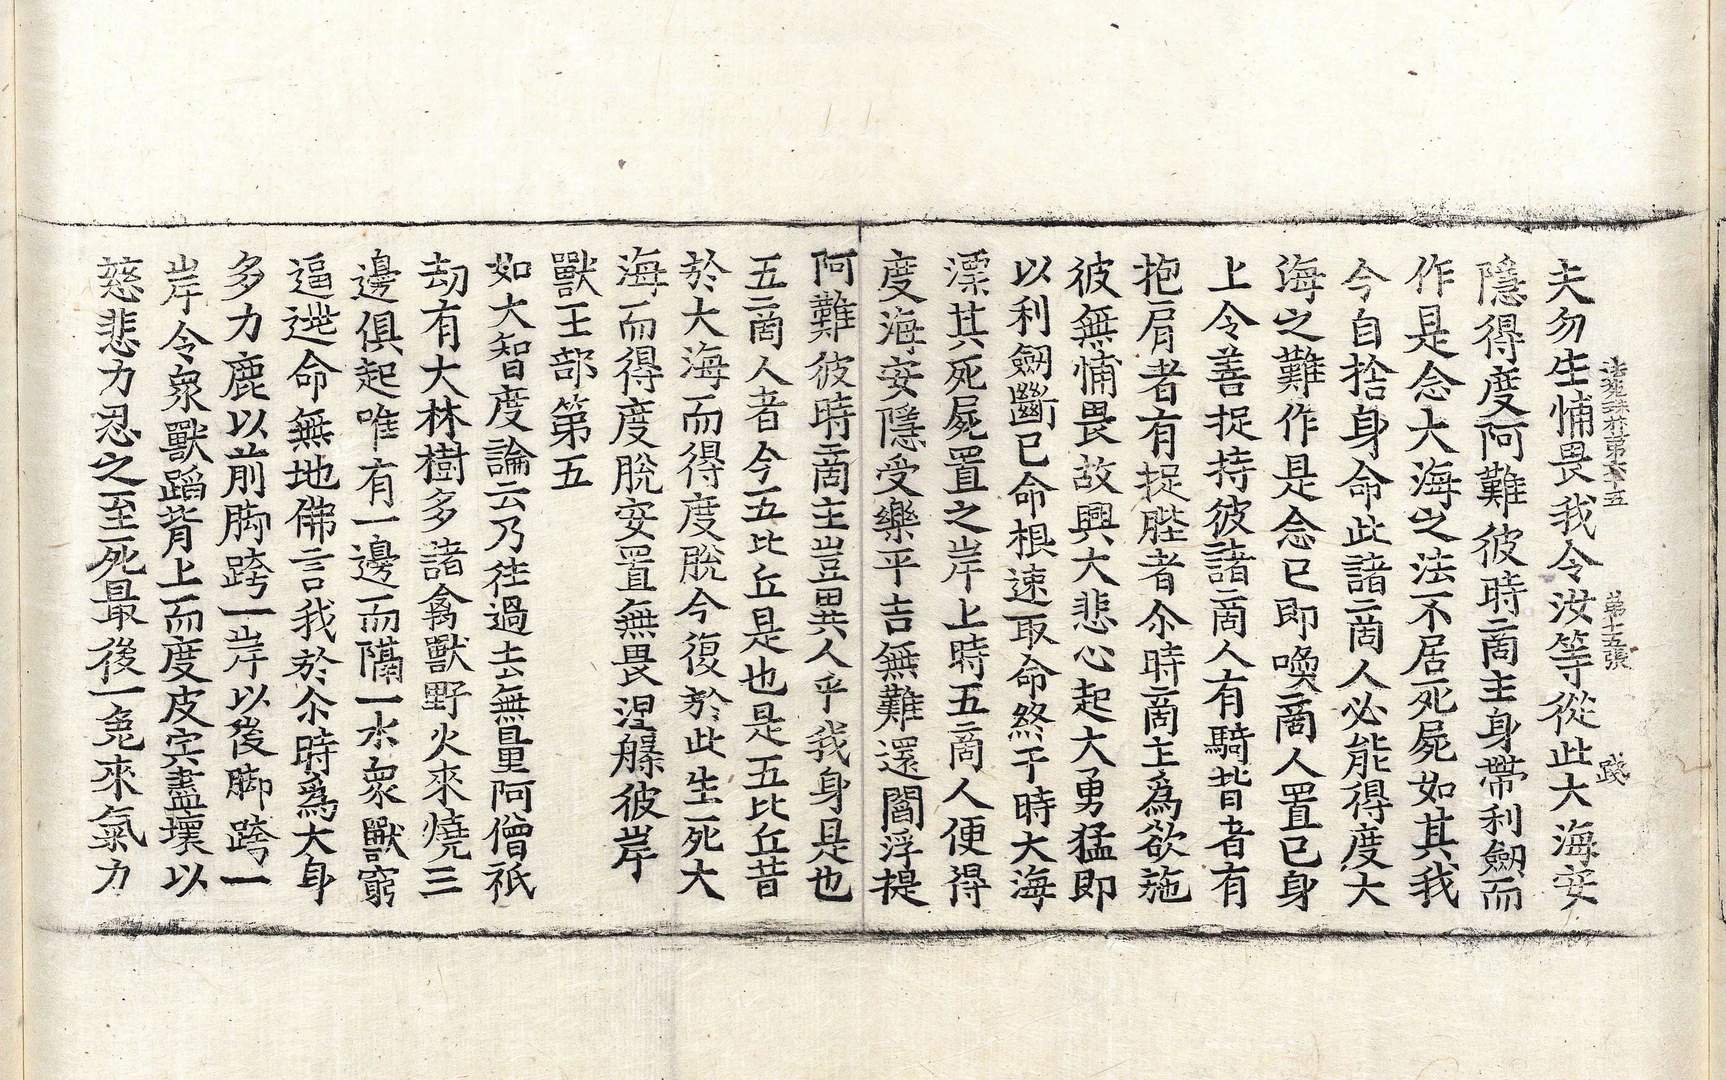 法苑珠林第六十五 第十五張 踐
夫勿生怖畏我令汝等從此大海安
隱得度阿難彼時商主身帶利劒而
作是念大海之法不居死屍如其我
今自捨身命此諸商人必能得度大
海之難作是念已即喚商人置已身
上令善捉持彼諸商人有騎背者有
抱肩者有捉䏶者尒時商主爲欲施
彼無怖畏故興大悲心起大勇猛即
以利劒斷已命根速取命終于時大海
漂其死屍置之岸上時五商人便得
度海安隱受樂平吉無難還閻浮提
阿難彼時商主豈異人乎我身是也
五商人者今五比丘是也是五比丘昔
於大海而得度脫今復於此生死大
海而得度脫安置無畏涅槃彼岸
獸王部第五
如大智度論云乃往過去無量阿僧祇
劫有大林樹多諸禽獸野火來燒三
邊俱起唯有一邊而隔一水衆獸窮
逼逃命無地佛言我於尒時爲大身
多力鹿以前脚跨一岸以後脚跨一
岸令衆獸蹈背上而度皮宍盡壞以
慈悲力忍之至死最後一兔來氣力